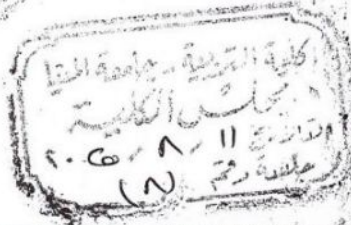 كلية التربية - جامعة المنيا
مجلس الكلية
التاريخ ١١ / ٨ / ٢٠٠٥
جلسة رقم (٨)